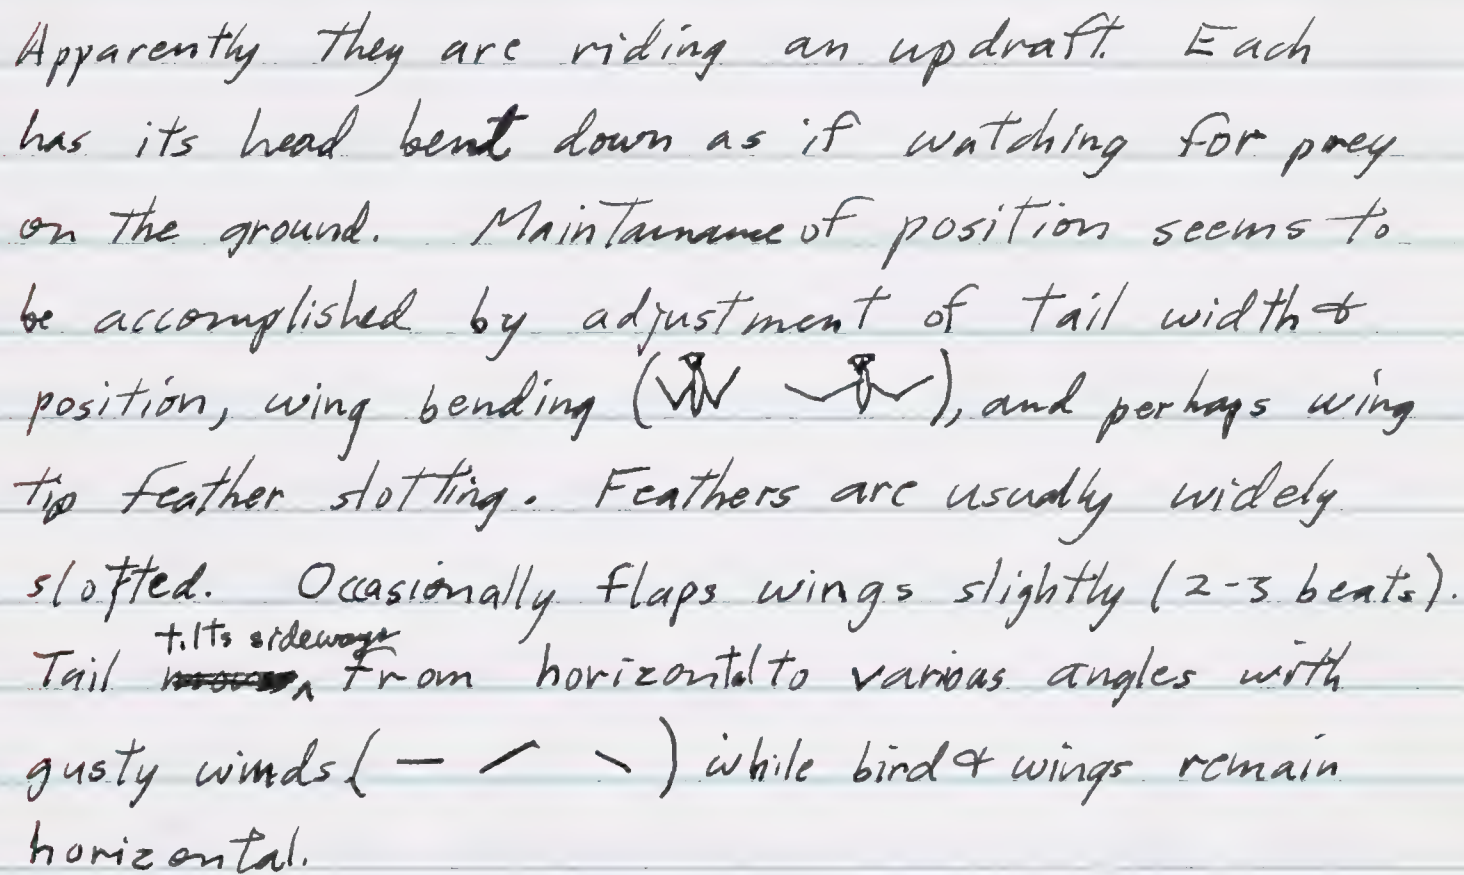 Apparently they are riding an updraft. Each
has its head bent down as if watching for prey
on the ground. Maintainance of position seems to
be accomplished by adjustment of tail width &
position, wing bending ( ), and perhaps wing
tip feather slotting. Feathers are usually widely
slotted. Occasionally flaps wings slightly (2-3 beats).
Tail tilts sideways from horizontal to various angles with
gusty winds (— / \) while bird & wings remain
horizontal.